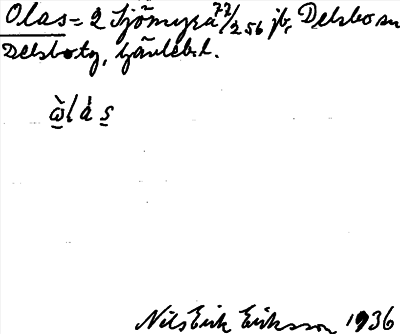 Olas = 2 Sjömyra 77/256 jb, Delsbo sn
Delsbo tg, Gävlebl.
ὼ̱lás̱
Nils Erik Eriksson 1936